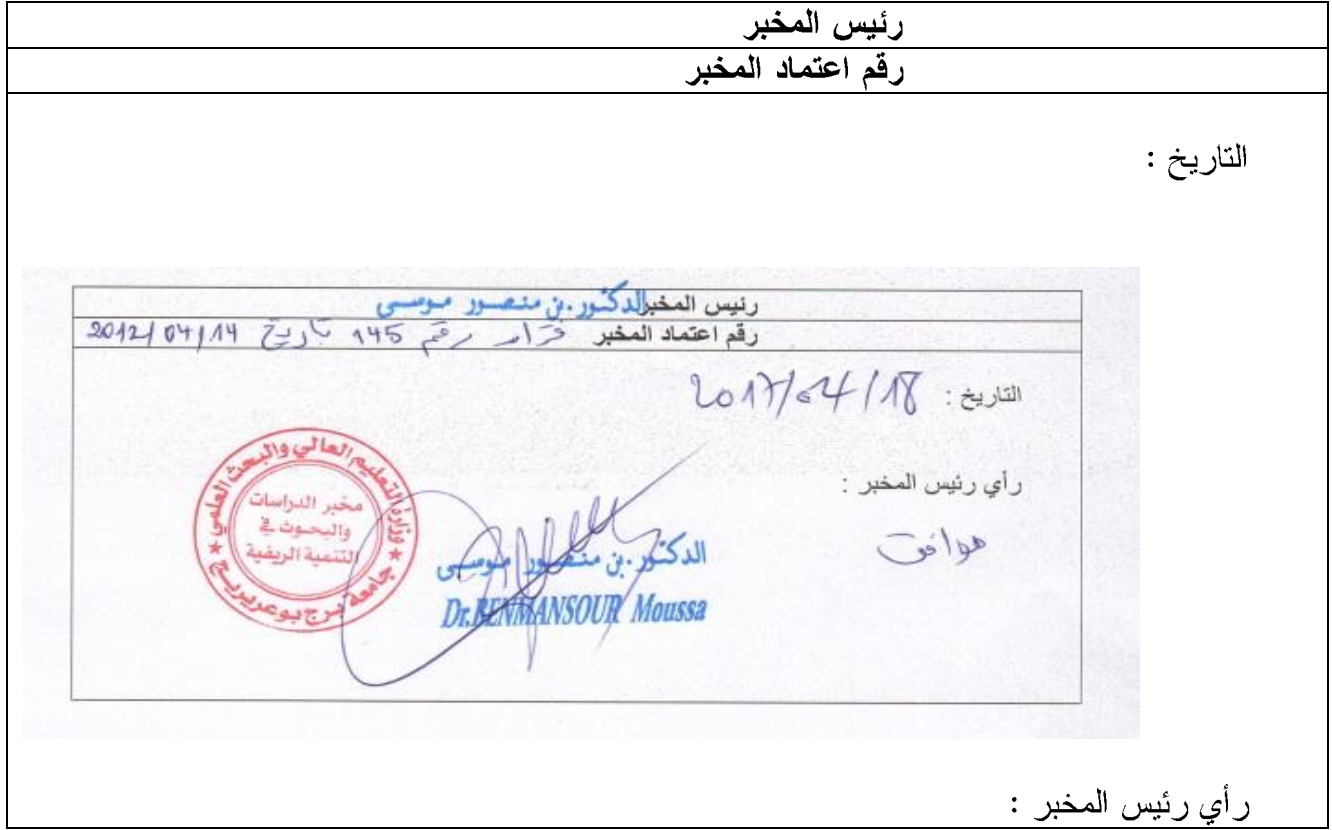 رئيس المخبر
رقم اعتماد المخبر
التاريخ :
رئيس المخبر الدكتور. بن منصور موسى
رقم اعتماد المخبر قرار رقم 145 تاريخ 2012/04/14
التاريخ : 2017/04/18
رأي رئيس المخبر :
موافق
وزارة التعليم العالي والبحث العلمي
مخبر الدراسات
والبحوث في
التنمية الريفية
جامعة برج بوعريريج
الدكتور. بن منصور موسى
Dr.BENMANSOUR Moussa
رأي رئيس المخبر :